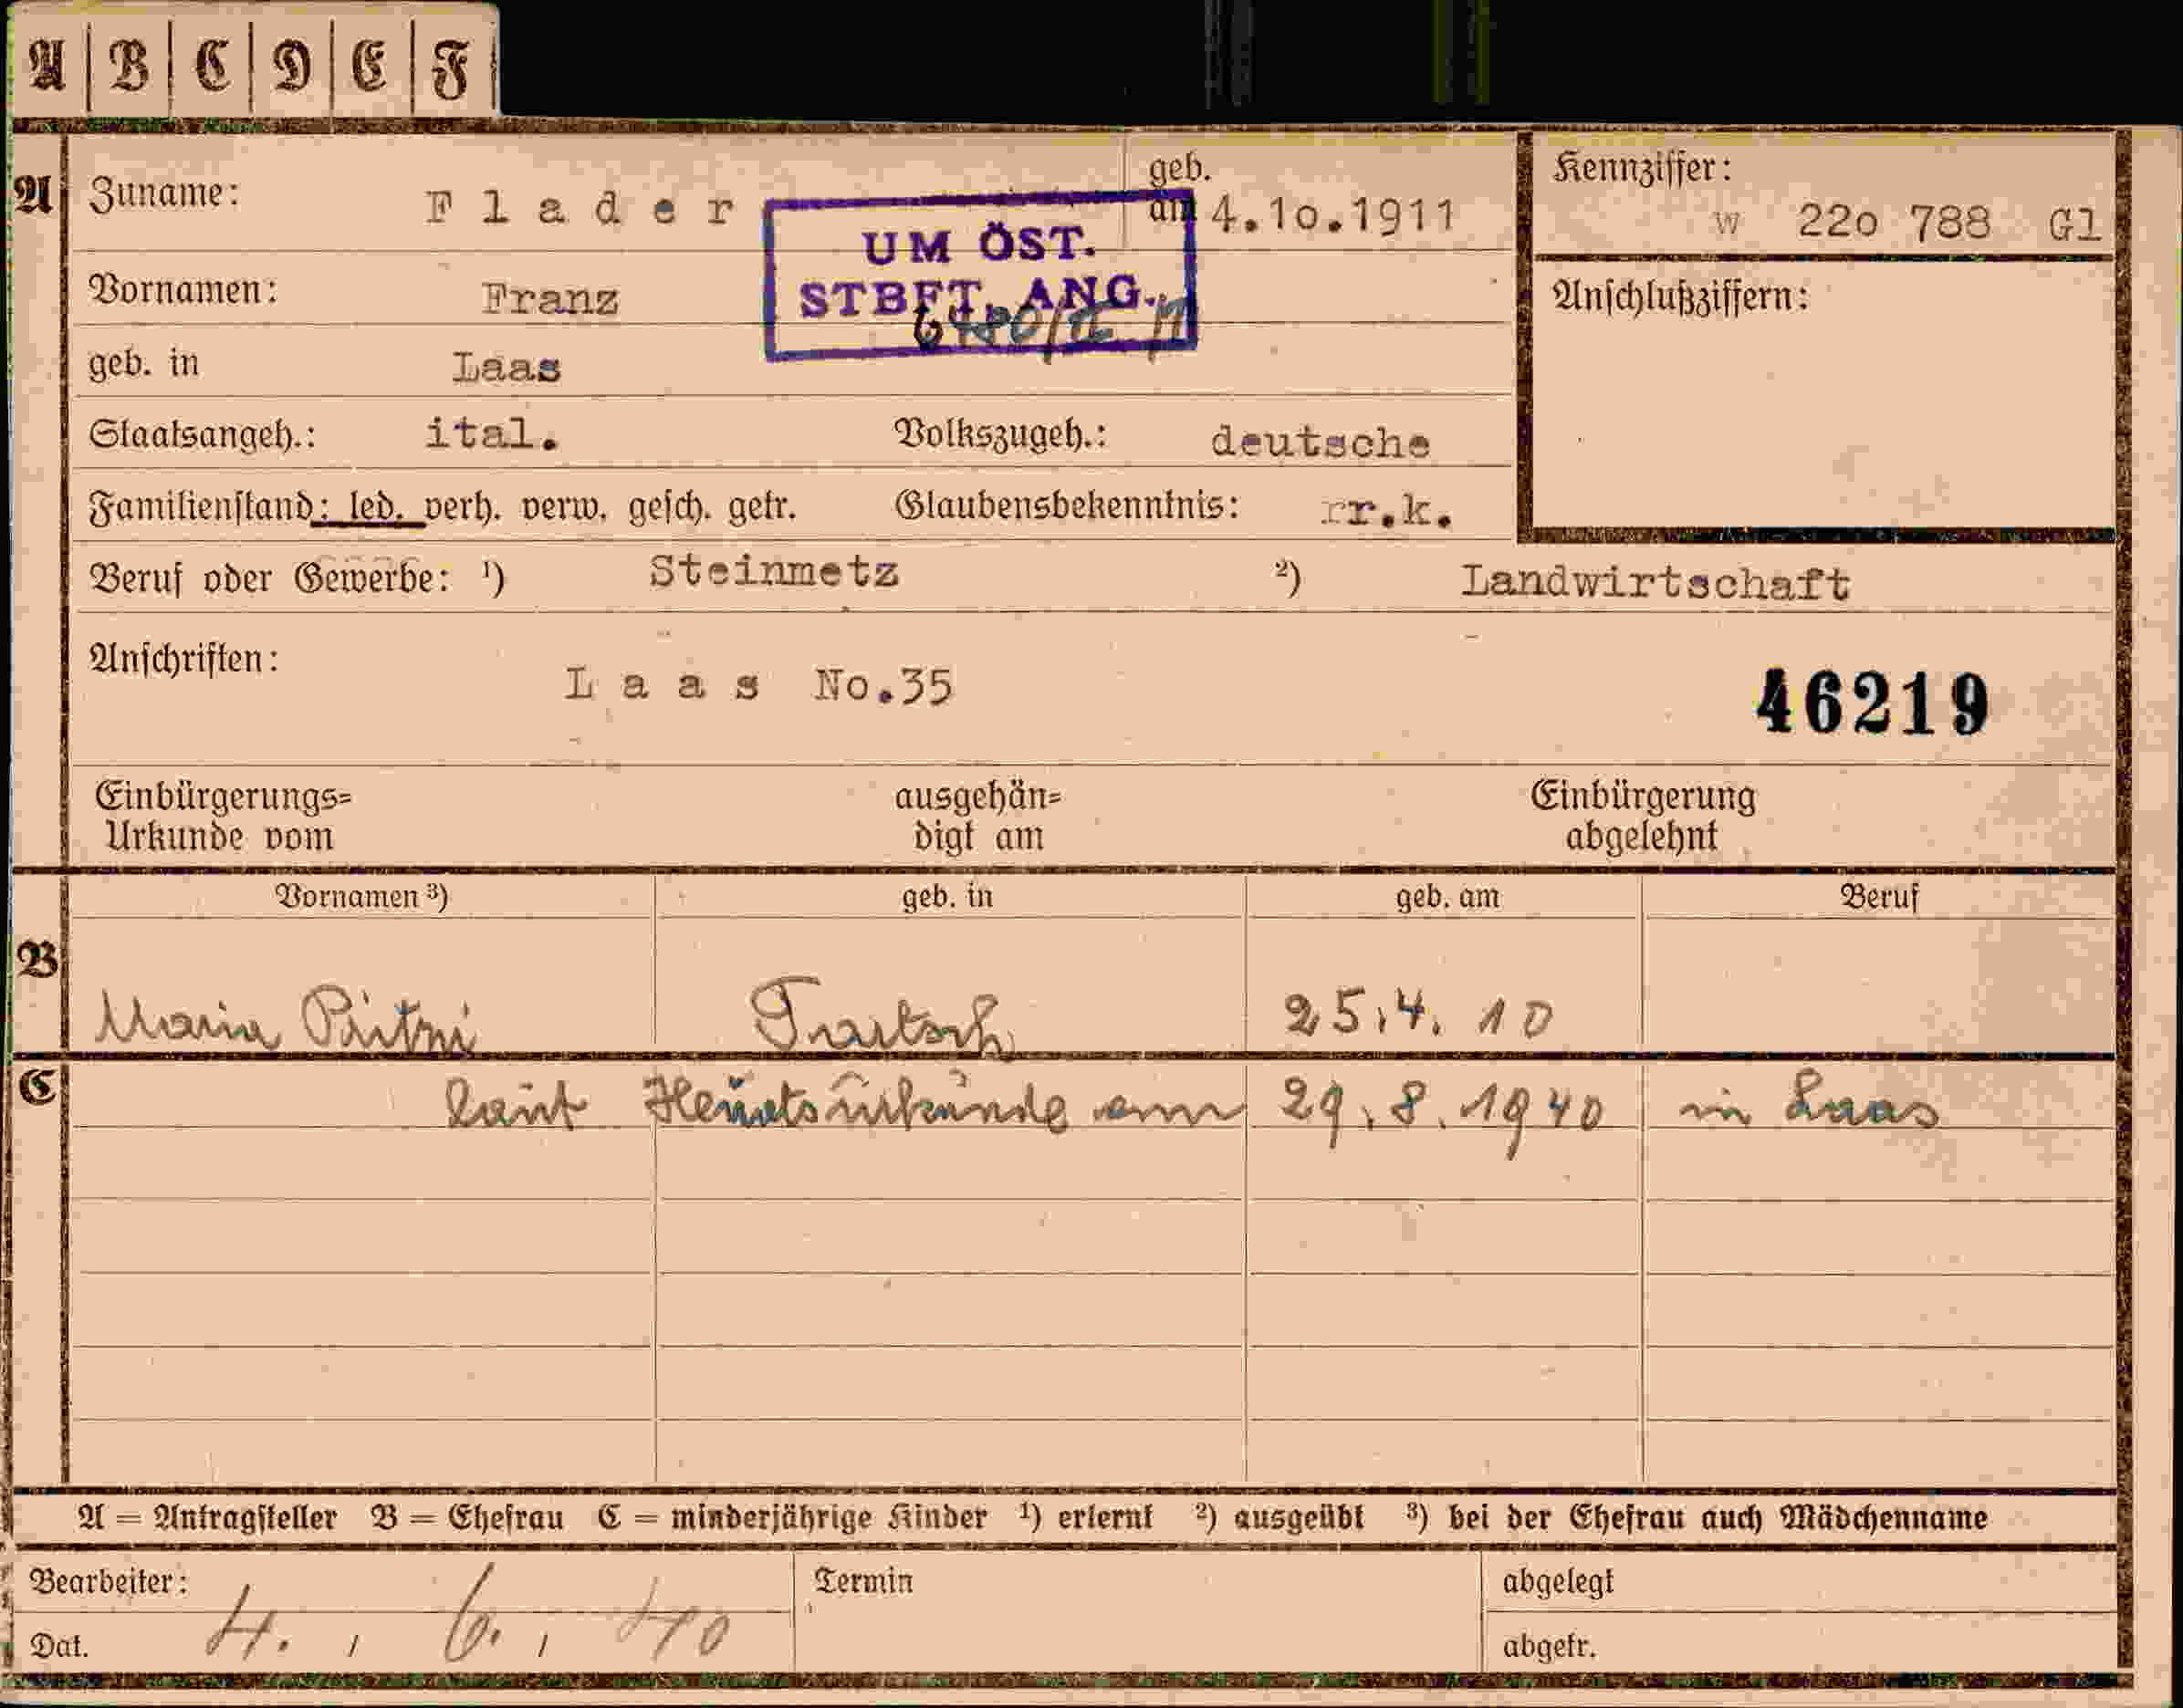 A B C D E F
A Zuname: Flader geb. am 4.10.1911 Kennziffer: W 22o 788 Gl
UM ÖST. STBFT. ANG.
Vornamen: Franz Anschlußziffern:
geb. in Laas
Staatsangeh.: ital. Volkszugeh.: deutsche
Familienstand: led. verh. verw. gesch. getr. Glaubensbekenntnis: rr.k.
Beruf oder Gewerbe: ¹) Steinmetz ²) Landwirtschaft
Anschriften: Laas No.35
46219
Einbürgerungs= ausgehän= Einbürgerung
Urkunde vom digt am abgelehnt
Vornamen ³) geb. in geb. am Beruf
B Maria 25.4.10
C laut am 29.8.1940 in Laas
A = Antragsteller B = Ehefrau C = minderjährige Kinder ¹) erlernt ²) ausgeübt ³) bei der Ehefrau auch Mädchenname
Bearbeiter: Termin abgelegt
Dat. 4. 6. 40 abgetr.